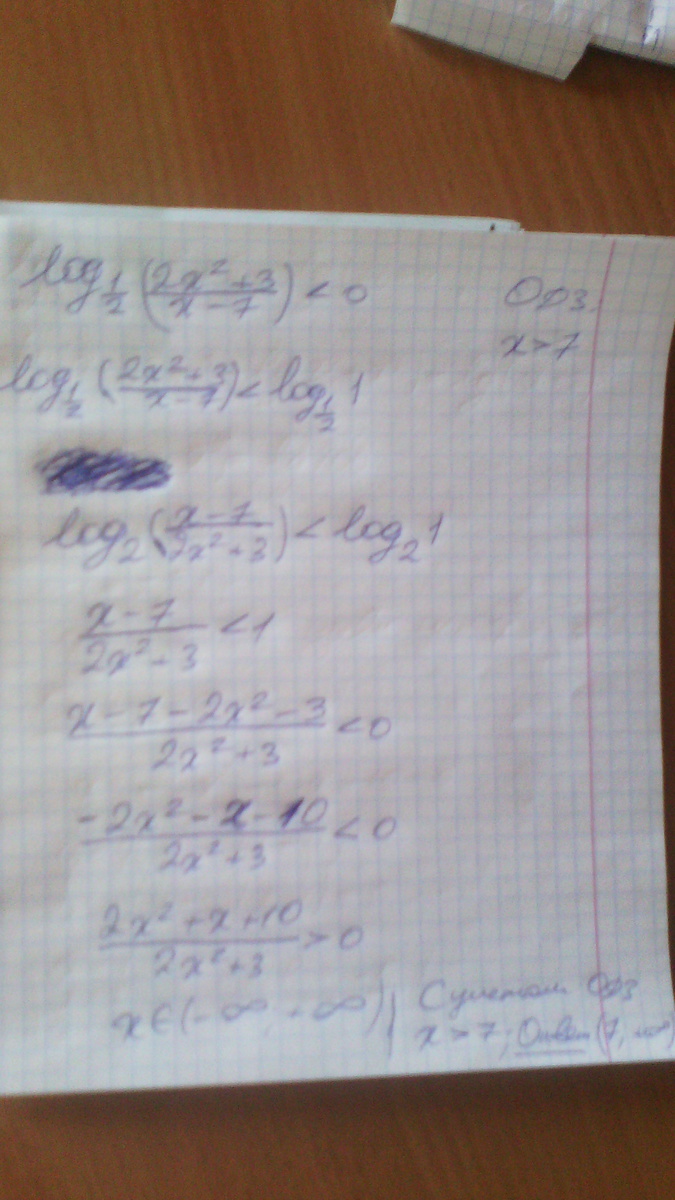 log_{1/2} ((2x² + 3)/(x - 7)) < 0
ОДЗ.
x > 7
log_{1/2} ((2x² + 3)/(x - 7)) < log_{1/2} 1
log_2 ((x - 7)/(2x² + 3)) < log_2 1
(x - 7)/(2x² + 3) < 1
(x - 7 - 2x² - 3)/(2x² + 3) < 0
(-2x² - x - 10)/(2x² + 3) < 0
(2x² + x + 10)/(2x² + 3) > 0
x ∈ (-∞, +∞)
С учетом ОДЗ
x > 7; Ответ (7, +∞)